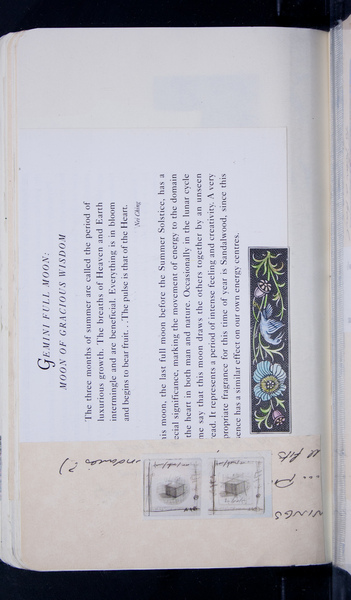 GEMINI FULL MOON:
MOON OF GRACIOUS WISDOM
The three months of summer are called the period of
luxurious growth. The breaths of Heaven and Earth
intermingle and are beneficial. Everything is in bloom
and begins to bear fruit. . .The pulse is that of the Heart.
Nei Ching
his moon, the last full moon before the Summer Solstice, has a
ecial significance, marking the movement of energy to the domain
the heart in both man and nature. Occasionally in the lunar cycle
me say that this moon draws the others together by an unseen
read. It represents a period of intense feeling and creativity. A very
propriate fragrance for this time of year is Sandalwood, since this
cence has a similar effect on our own energy centres.
NINGS